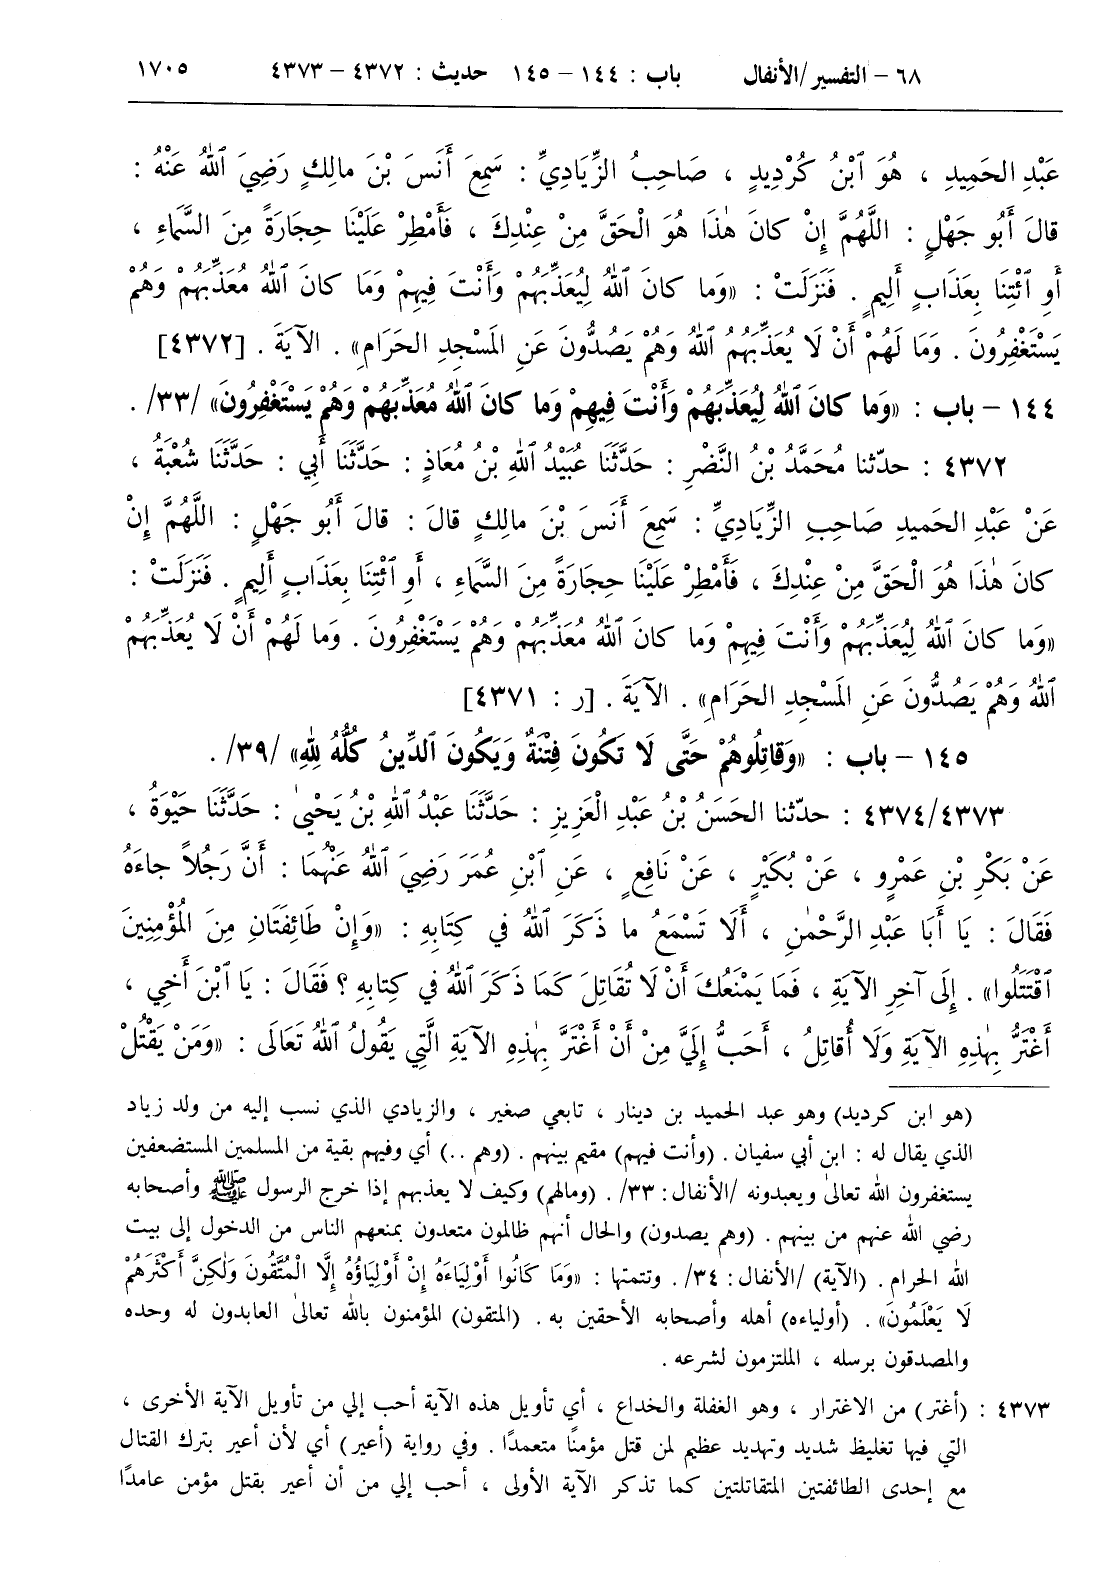 ٦٨ – التفسير/الأنفال باب : ١٤٤ – ١٤٥ حديث : ٤٣٧٢ – ٤٣٧٣ ١٧٠٥
عَبْدِ الحَمِيدِ ، هُوَ ٱبْنُ كُرْدِيدٍ ، صَاحِبُ الزِّيَادِيِّ : سَمِعَ أَنَسَ بْنَ مالِكٍ رَضِيَ ٱللهُ عَنْهُ :
قالَ أَبُو جَهْلٍ : اللَّهُمَّ إِنْ كانَ هٰذَا هُوَ الْحَقَّ مِنْ عِنْدِكَ ، فَأَمْطِرْ عَلَيْنَا حِجَارَةً مِنَ السَّمَاءِ ،
أَوِ ٱئْتِنَا بِعَذَابٍ أَلِيمٍ . فَنَزَلَتْ : «وَما كانَ ٱللهُ لِيُعَذِّبَهُمْ وَأَنْتَ فِيهِمْ وَمَا كانَ ٱللهُ مُعَذِّبَهُمْ وَهُمْ
يَسْتَغْفِرُونَ . وَمَا لَهُمْ أَنْ لَا يُعَذِّبَهُمُ ٱللهُ وَهُمْ يَصُدُّونَ عَنِ المَسْجِدِ الحَرَامِ» . الآيَةَ . [٤٣٧٢]
١٤٤ – باب : «وَما كانَ ٱللهُ لِيُعَذِّبَهُمْ وَأَنْتَ فِيهِمْ وَما كانَ ٱللهُ مُعَذِّبَهُمْ وَهُمْ يَسْتَغْفِرُونَ» /٣٣/ .
٤٣٧٢ : حدّثنا مُحَمَّدُ بْنُ النَّضْرِ : حَدَّثَنَا عُبَيْدُ ٱللهِ بْنُ مُعَاذٍ : حَدَّثَنَا أَبِي : حَدَّثَنَا شُعْبَةُ ،
عَنْ عَبْدِ الحَمِيدِ صَاحِبِ الزِّيَادِيِّ : سَمِعَ أَنَسَ بْنَ مالِكٍ قالَ : قالَ أَبُو جَهْلٍ : اللَّهُمَّ إِنْ
كانَ هٰذَا هُوَ الْحَقَّ مِنْ عِنْدِكَ ، فَأَمْطِرْ عَلَيْنَا حِجَارَةً مِنَ السَّمَاءِ ، أَوِ ٱئْتِنَا بِعَذَابٍ أَلِيمٍ . فَنَزَلَتْ :
«وَما كانَ ٱللهُ لِيُعَذِّبَهُمْ وَأَنْتَ فِيهِمْ وَما كانَ ٱللهُ مُعَذِّبَهُمْ وَهُمْ يَسْتَغْفِرُونَ . وَما لَهُمْ أَنْ لَا يُعَذِّبَهُمُ
ٱللهُ وَهُمْ يَصُدُّونَ عَنِ المَسْجِدِ الحَرَامِ» . الآيَةَ . [ر : ٤٣٧١]
١٤٥ – باب : «وَقاتِلُوهُمْ حَتَّى لَا تَكُونَ فِتْنَةٌ وَيَكُونَ ٱلدِّينُ كُلُّهُ لِلّٰهِ» /٣٩/ .
٤٣٧٤/٤٣٧٣ : حدّثنا الحَسَنُ بْنُ عَبْدِ الْعَزِيزِ : حَدَّثَنَا عَبْدُ ٱللهِ بْنُ يَحْيىٰ : حَدَّثَنَا حَيْوَةُ ،
عَنْ بَكْرِ بْنِ عَمْرٍو ، عَنْ بُكَيْرٍ ، عَنْ نَافِعٍ ، عَنِ ٱبْنِ عُمَرَ رَضِيَ ٱللهُ عَنْهُمَا : أَنَّ رَجُلاً جاءَهُ
فَقَالَ : يَا أَبَا عَبْدِ الرَّحْمٰنِ ، أَلَا تَسْمَعُ ما ذَكَرَ ٱللهُ في كِتَابِهِ : «وَإِنْ طَائِفَتَانِ مِنَ الْمُؤْمِنِينَ
ٱقْتَتَلُوا» . إِلَى آخِرِ الآيَةِ ، فَمَا يَمْنَعُكَ أَنْ لَا تُقَاتِلَ كَمَا ذَكَرَ ٱللهُ في كِتَابِهِ ؟ فَقَالَ : يَا ٱبْنَ أَخِي ،
أَغْتَرُّ بِهٰذِهِ الآيَةِ وَلَا أُقاتِلُ ، أَحَبُّ إِلَيَّ مِنْ أَنْ أَغْتَرَّ بِهٰذِهِ الآيَةِ الَّتِي يَقُولُ ٱللهُ تَعَالَى : «وَمَنْ يَقْتُلْ
(هو ابن كرديد) وهو عبد الحميد بن دينار ، تابعي صغير ، والزيادي الذي نسب إليه من ولد زياد
الذي يقال له : ابن أبي سفيان . (وأنت فيهم) مقيم بينهم . (وهم ..) أي وفيهم بقية من المسلمين المستضعفين
يستغفرون الله تعالىٰ ويعبدونه /الأنفال: ٣٣/. (ومالهم) وكيف لا يعذبهم إذا خرج الرسول ﷺ وأصحابه
رضي الله عنهم من بينهم . (وهم يصدون) والحال أنهم ظالمون متعدون بمنعهم الناس من الدخول إلى بيت
الله الحرام. (الآية) /الأنفال: ٣٤/. وتتمتها : «وَمَا كَانُوا أَوْلِيَاءَهُ إِنْ أَوْلِيَاؤُهُ إِلَّا الْمُتَّقُونَ وَلٰكِنَّ أَكْثَرَهُمْ
لَا يَعْلَمُونَ» . (أولياءه) أهله وأصحابه الأحقين به. (المتقون) المؤمنون بالله تعالىٰ العابدون له وحده
والمصدقون برسله ، الملتزمون لشرعه .
٤٣٧٣ : (أغتر) من الاغترار ، وهو الغفلة والخداع ، أي تأويل هذه الآية أحب إلي من تأويل الآية الأخرى ،
التي فيها تغليظ شديد وتهديد عظيم لمن قتل مؤمنًا متعمدًا . وفي رواية (أعير) أي لأن أعير بترك القتال
مع إحدى الطائفتين المتقاتلتين كما تذكر الآية الأولى ، أحب إلي من أن أعير بقتل مؤمن عامدًا